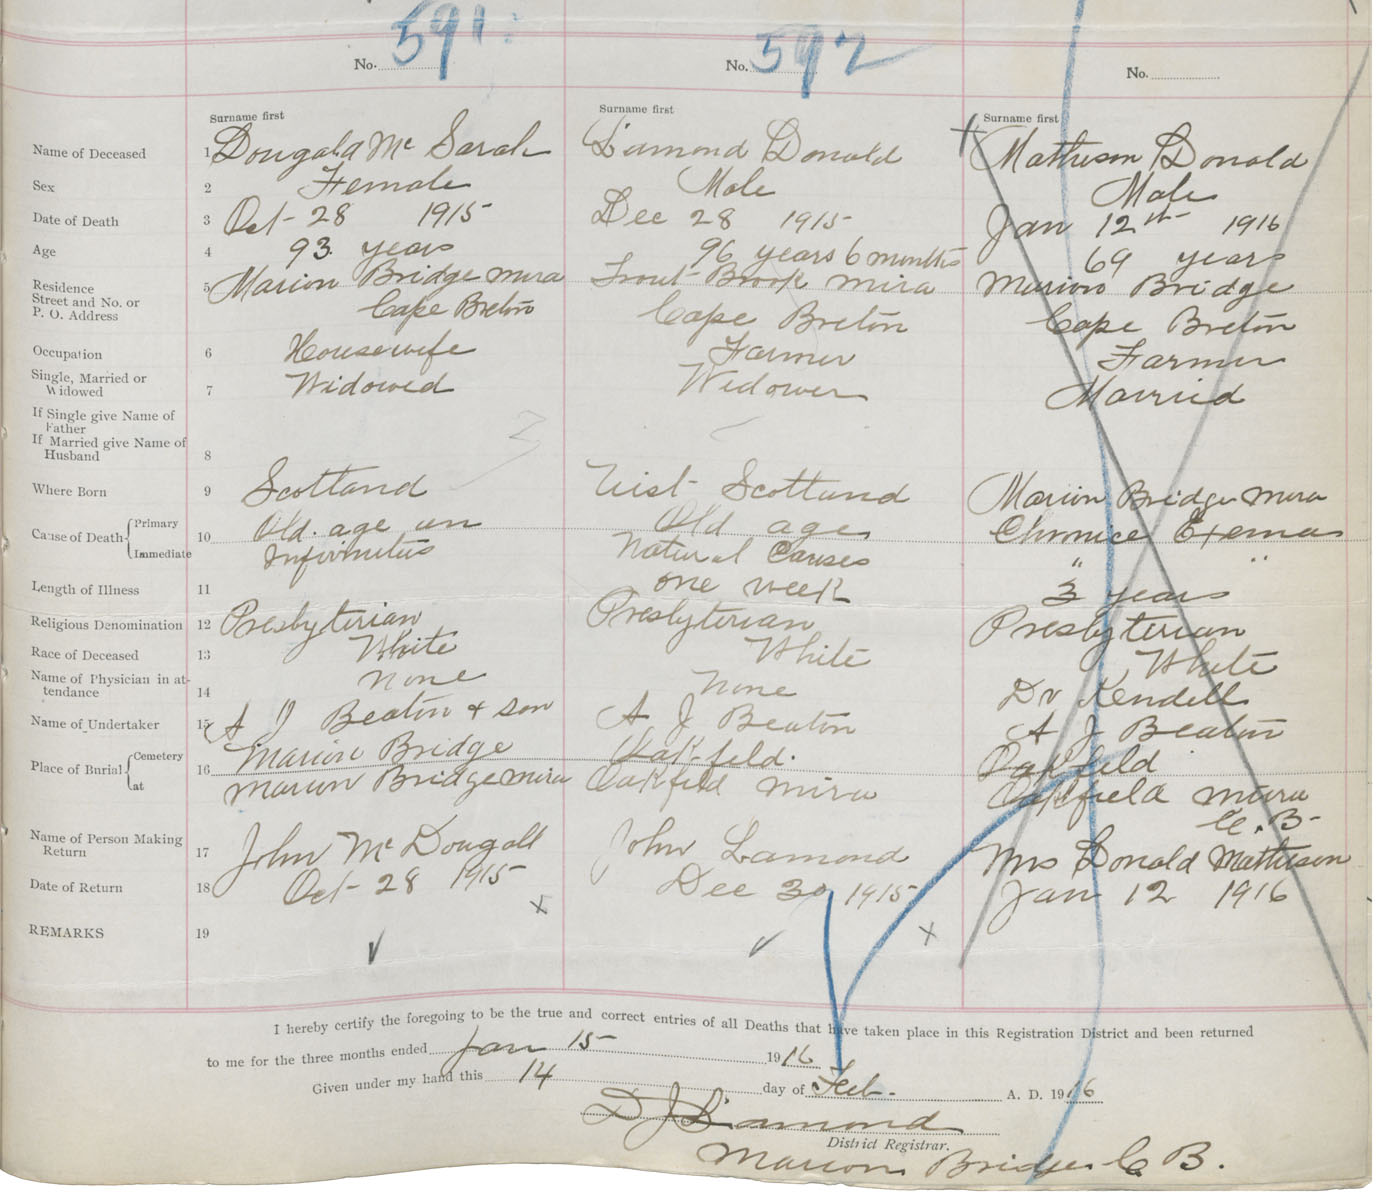 No. 591
No. 592
No.
Surname first
Surname first
Surname first
Name of Deceased 1 Dougald Mc Sarah Lamond Donald Matheson Donald
Sex 2 Female Male Male
Date of Death 3 Oct 28 1915 Dec 28 1915 Jan 12th 1916
Age 4 93 years 96 years 6 months 69 years
Residence 5 Marion Bridge Mira Trout Brook Mira Marion Bridge
Street and No. or
P. O. Address Cape Breton Cape Breton Cape Breton
Occupation 6 Housewife Farmer Farmer
Single, Married or
Widowed 7 Widowed Widower Married
If Single give Name of
Father
If Married give Name of
Husband 8
Where Born 9 Scotland Uist Scotland Marion Bridge Mira
Cause of Death Primary 10 Old age an Old age Chronice Exema
Immediate Infirmities Natural Causes " "
Length of Illness 11 one week 3 years
Religious Denomination 12 Presbyterian Presbyterian Presbyterian
Race of Deceased 13 White White White
Name of Physician in at-
tendance 14 None None Dr Kendell
Name of Undertaker 15 A J Beaton & Son A J Beaton A J Beaton
Place of Burial Cemetery 16 Marion Bridge Oakfeld. Oakfeld
at Marion Bridge Mira Oakfield Mira Oakfield Mira
C. B-
Name of Person Making
Return 17 John McDougall John Lamond Mrs Donald Matheson
Date of Return 18 Oct 28 1915 Dec 30 1915 Jan 12 1916
REMARKS 19
I hereby certify the foregoing to be the true and correct entries of all Deaths that have taken place in this Registration District and been returned
to me for the three months ended Jan 15 1916
Given under my hand this 14 day of Feb. A. D. 1916
D J Lamond
District Registrar.
Marion Bridge C B.